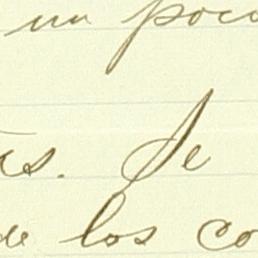 un poco
as. Se
de los co